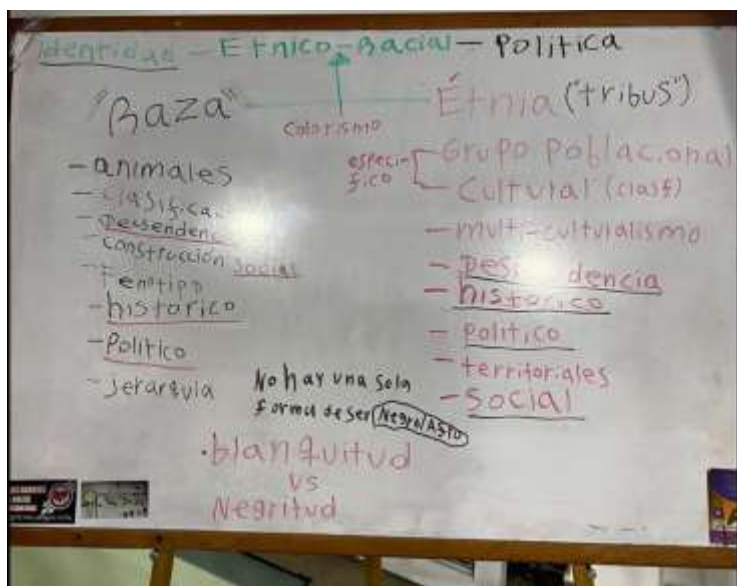 Identidad - Etnico-Racial - Politica
"Raza"
Colorismo
- animales
- clasifica
- Dessendenc
- construcción social
- Fenotipo
- histórico
- Político
- Jerarquía
Étnia ("tribus")
especi-
fico
Grupo Poblacional
Cultural (clasf)
- multi-culturalismo
- Des dencia
- histórico
- político
- territoriales
- social
No hay una sola
forma de ser Negro/Afro
. blanquitud
vs
Negritud